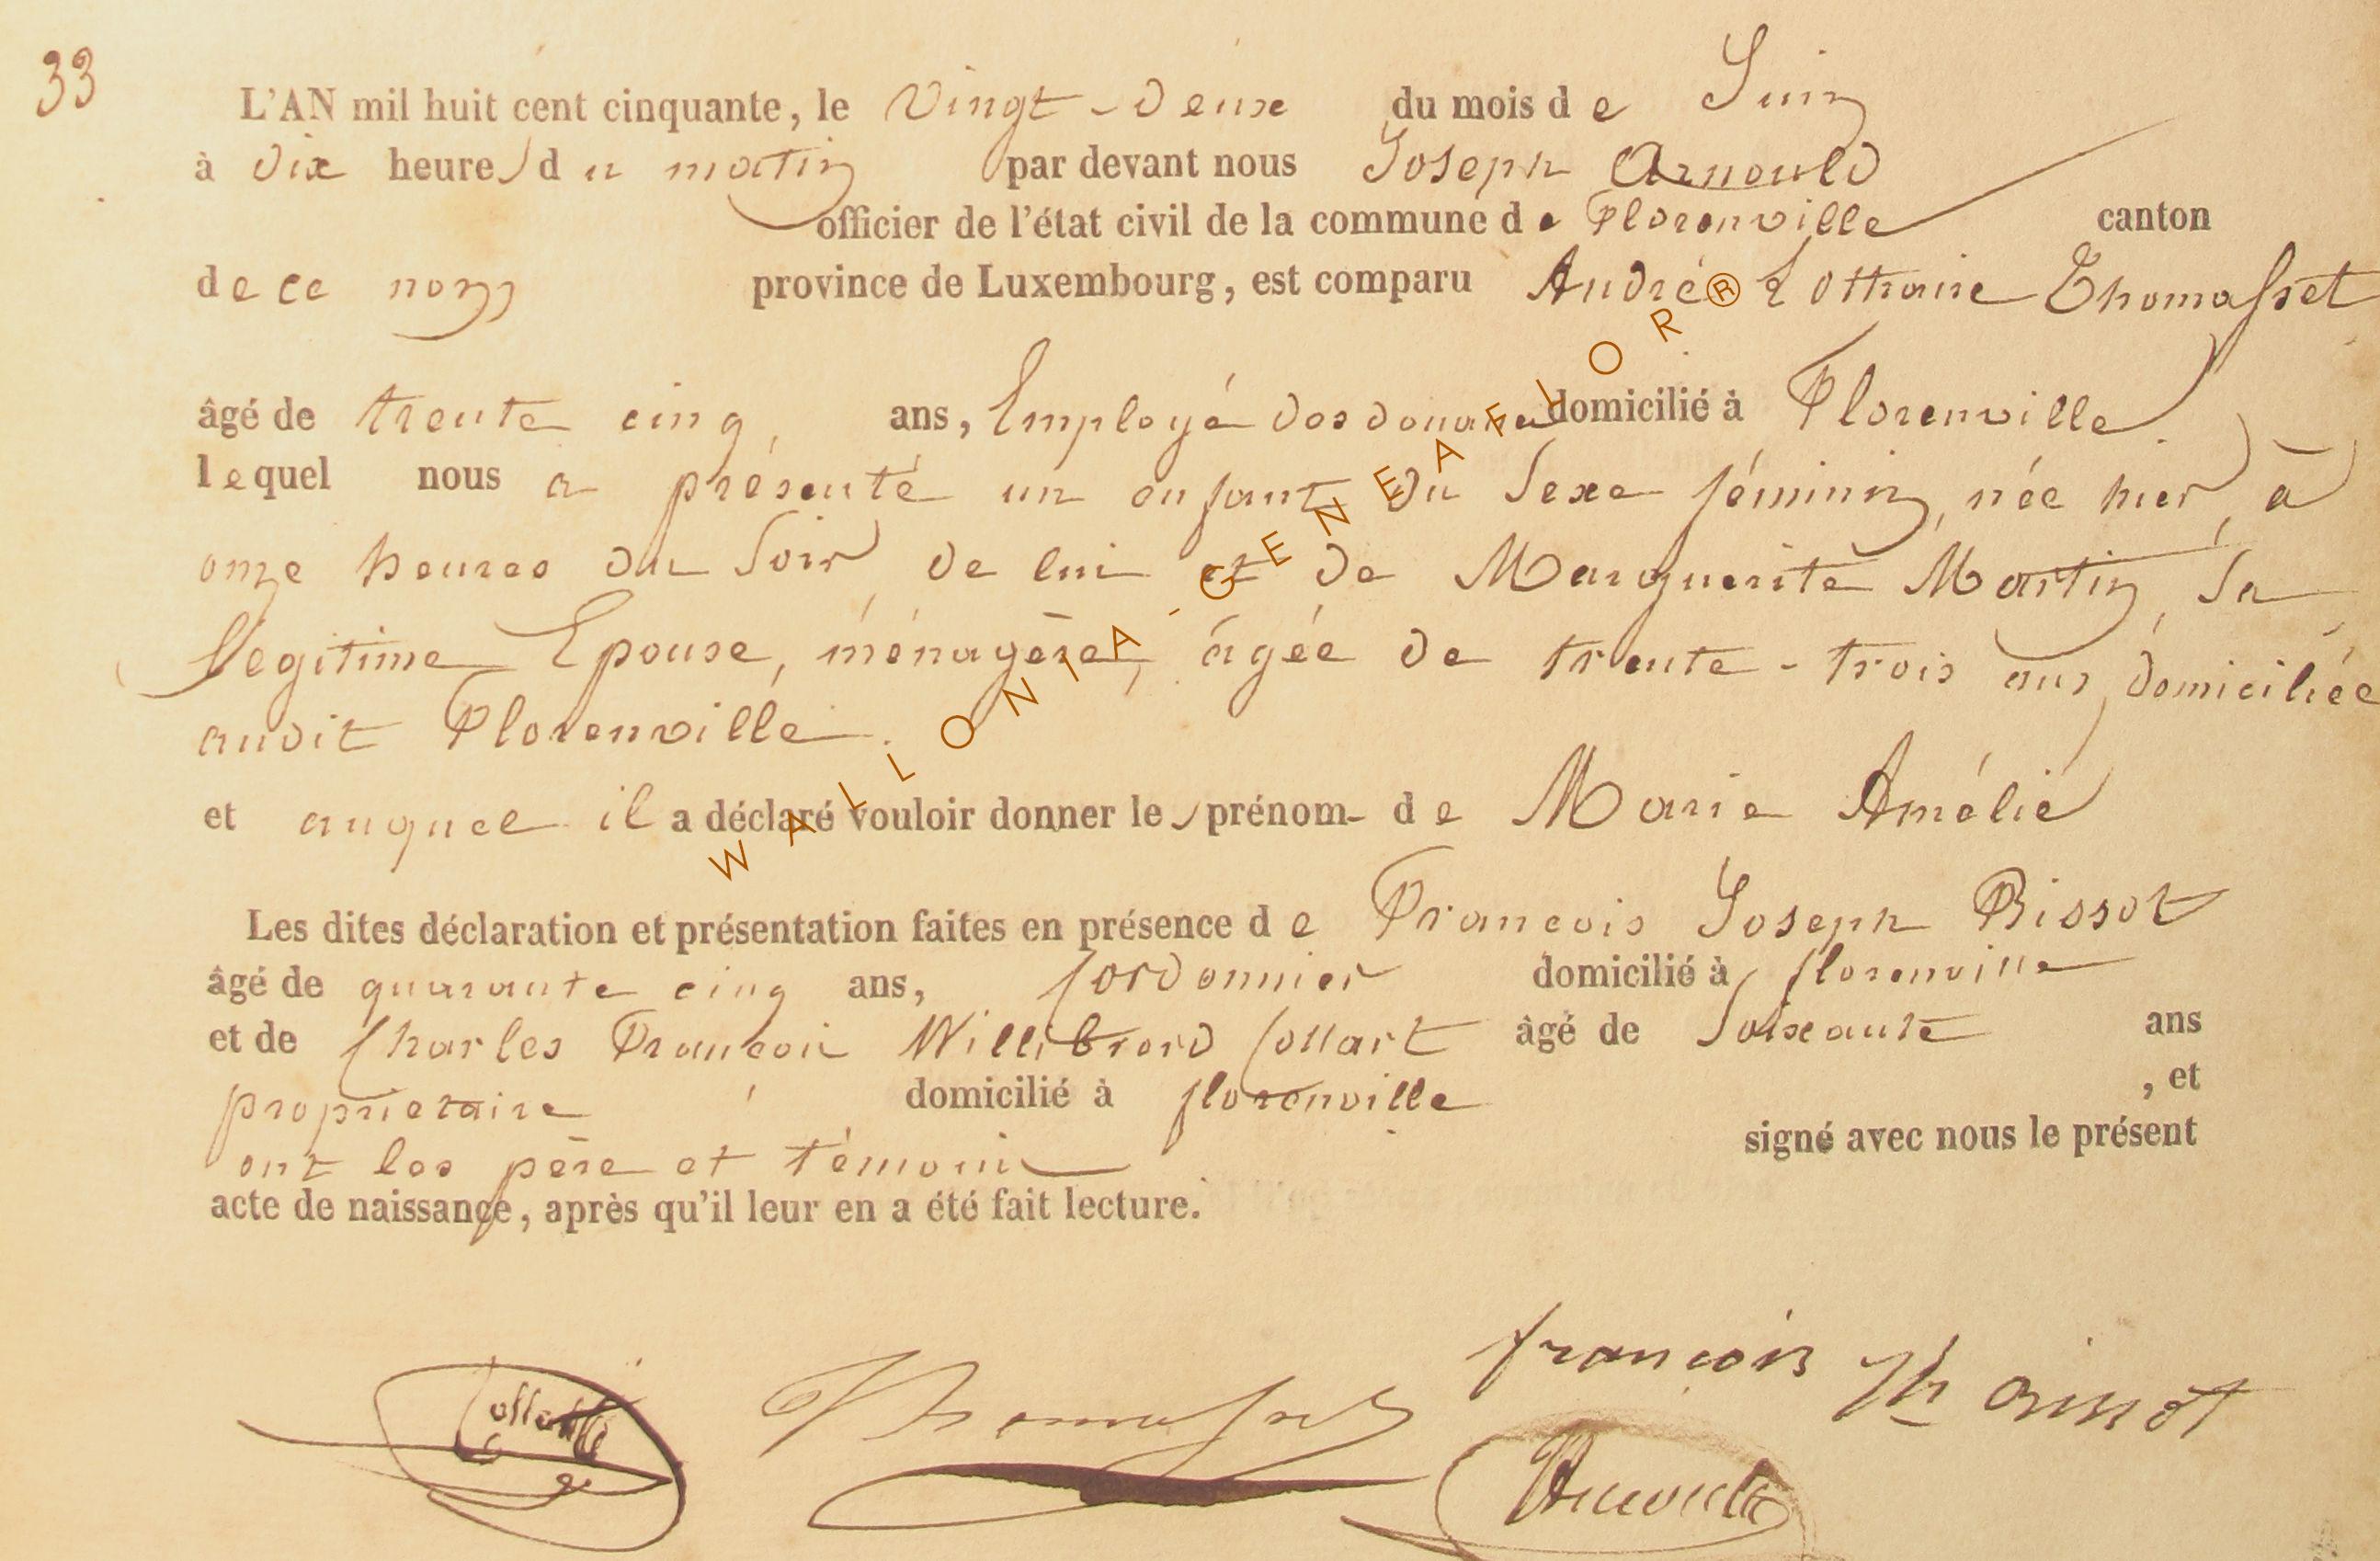 33
L'AN mil huit cent cinquante, le Vingt-deux du mois de Juin
à dix heures du matin par devant nous Joseph Arnould
officier de l'état civil de la commune de Florenville canton
de ce nom province de Luxembourg, est comparu André Lothaire Thomasset
âgé de trente cinq, ans, Employé des douanes domicilié à Florenville.
lequel nous a présenté un enfant du sexe féminin, née hier, à
onze heures du soir de lui et de Marguerite Martin, sa
légitime Epouse, ménagère, âgée de trente-trois ans, domiciliée
audit Florenville.
et auquel il a déclaré vouloir donner les prénom- de Marie Amélie
Les dites déclaration et présentation faites en présence de Francois Joseph Bissot
âgé de quarante cinq ans, Cordonnier domicilié à florenville
et de Charles Francois Willibrord Collart âgé de Soixante ans
propriétaire domicilié à florenville , et
ont les père et témoin signé avec nous le présent
acte de naissance, après qu'il leur en a été fait lecture.
Thomasset
francois Jh
Arnould
WALLONIA-GENEAFLOR®